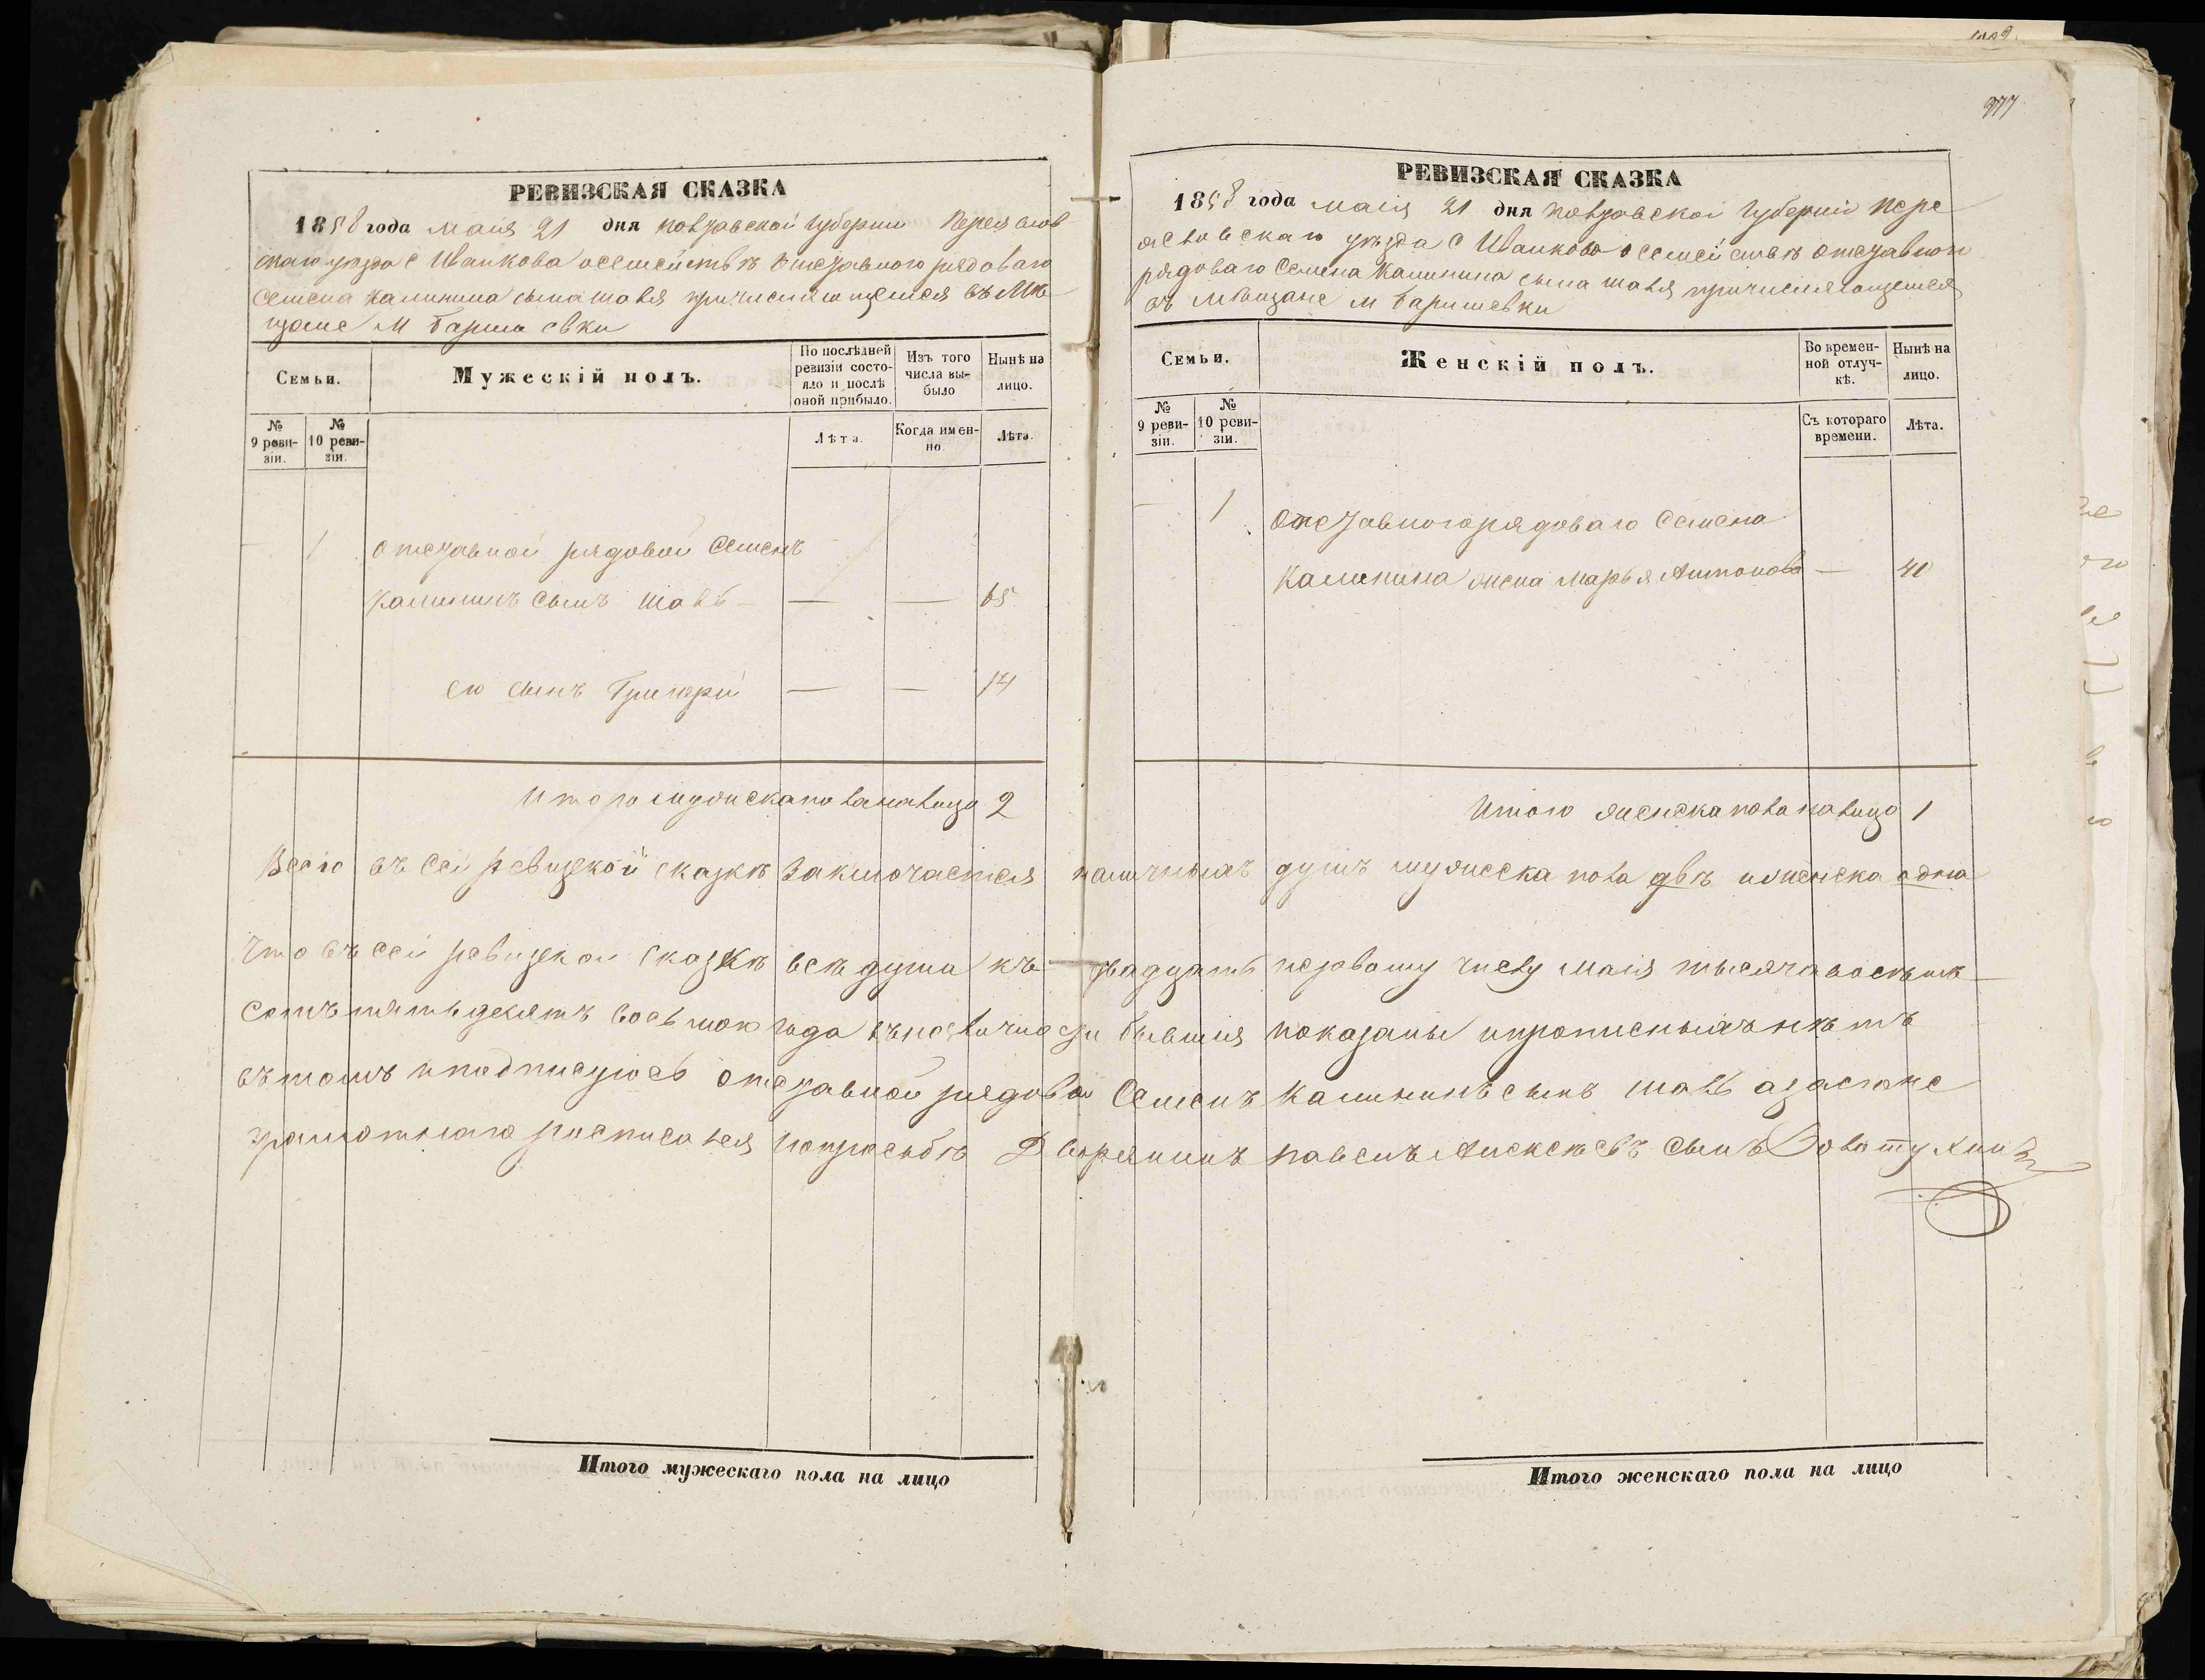 377
РЕВИЗСКАЯ СКАЗКА
1858 года маія 21 дня полтавской губерніи Переяслов
скаго уезда с Иванкова осемействѣ отставного рядоваго
Семена Калинина сына шаля причисляющемся въ Мѣ
щане М Барышевки
Семьи.
Мужескій полъ.
По послѣдней ревизіи состояло и послѣ оной прибыло.
Изъ того числа выбыло
Нынѣ на лицо.
№ 9 ревизіи.
№ 10 ревизіи.
Лѣта.
Когда именно.
Лѣта.
— 1 отставной рядовой Семенъ
Калининъ сынъ шаль — — — 65
его сынъ Григорій — — 14
Итого мужска пола налицо 2
РЕВИЗСКАЯ СКАЗКА
1858 года маія 21 дня полтавской губерніи пере
ясловскаго уезда с Иванкова о семействѣ отставног
рядоваго Семена Калинина сына шаля причисляющемся
въ мѣщане м Баришевки
Семьи.
Женскій полъ.
Во временной отлучкѣ.
Нынѣ на лицо.
№ 9 ревизіи.
№ 10 ревизіи.
Съ котораго времени.
Лѣта.
— 1 отставного рядоваго Семена
Калинина жена Марья Антонова — 40
Итого женска пола налицо 1
Всего въ сей ревизской сказкѣ заключается наличныхъ душъ мужеска пола двѣ иженска одна
Что въ сей ревизской сказкѣ всѣ душа къ двадцать первому числу маія тысяча восемь
сотъ пятьдесятъ восьмого года въналичности бывшія показаны ипрописныхъ нѣтъ
въ томъ иподписуюсь отставной рядовой Семенъ Калининъ сынъ шаль азаего не
грамотнаго росписался попросьбѣ Дворянинъ павелъ Алексѣевъ сынъ
Итого мужескаго пола на лицо
Итого женскаго пола на лицо